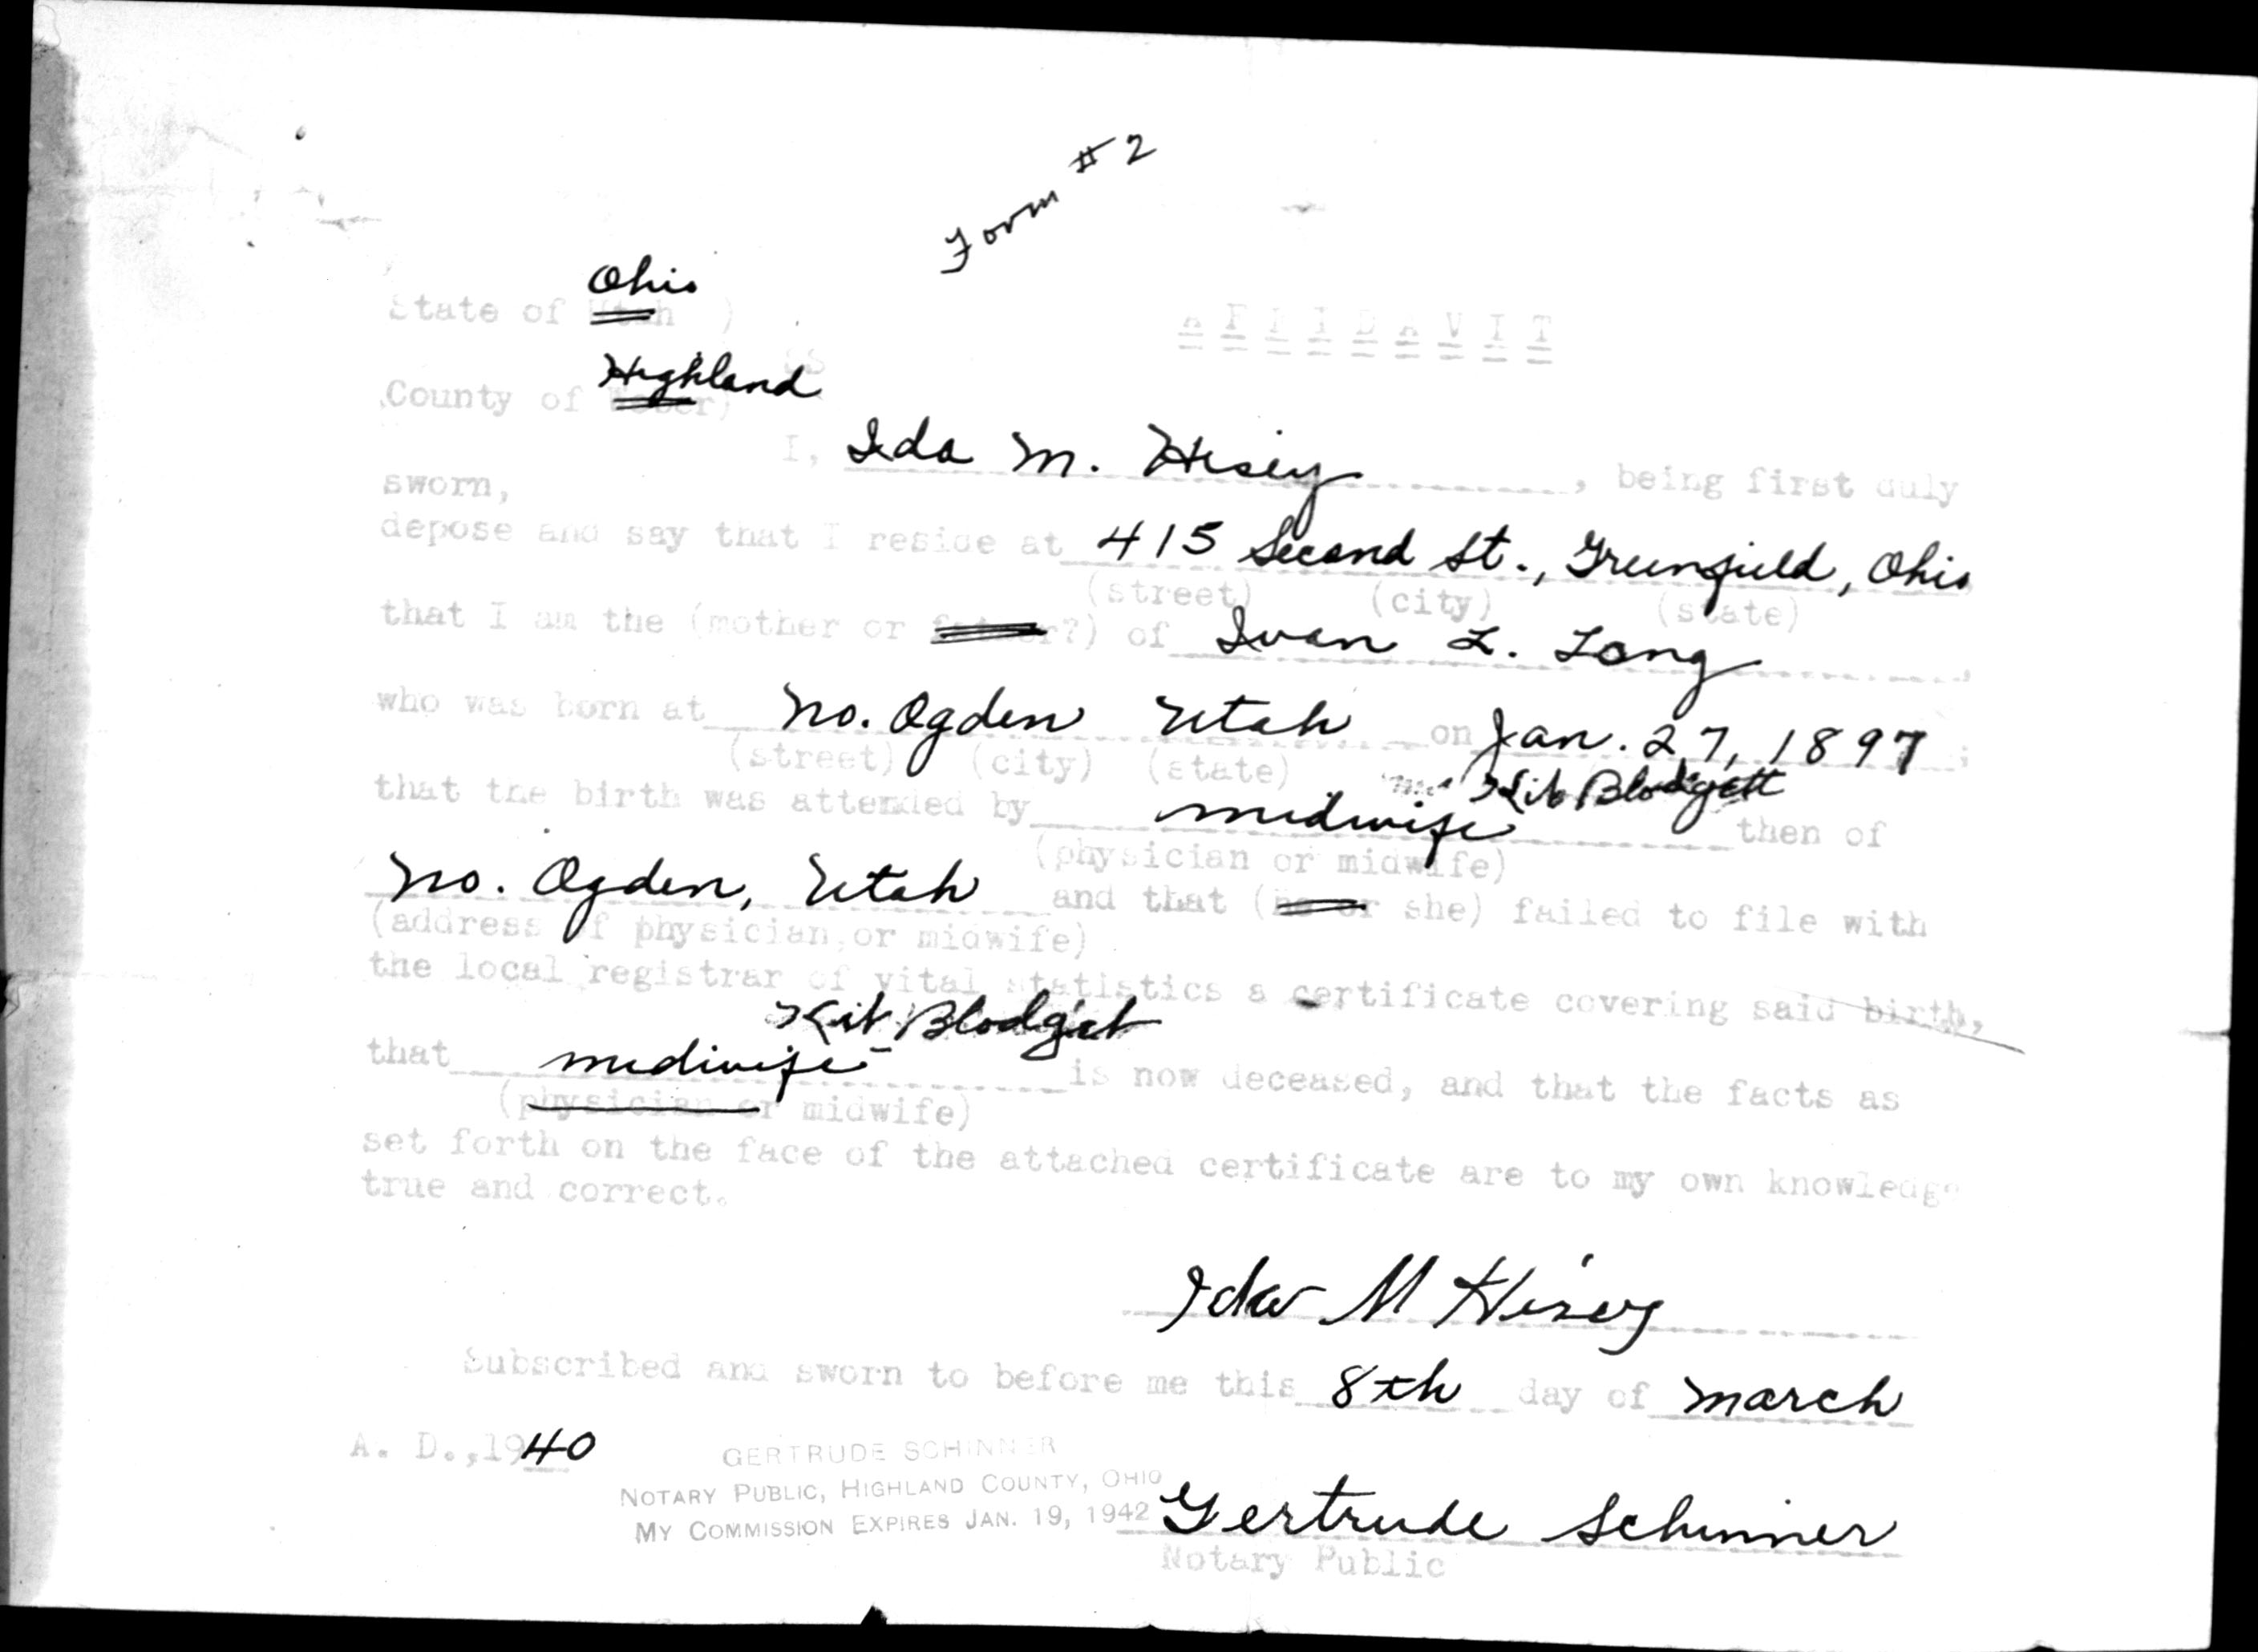 Form #2
Ohio
State of Utah )
SS
Highland
County of Weber)
AFFIDAVIT
I, Ida M. Hisey, being first duly
sworn,
depose and say that I reside at 415 Second St., Greenfield, Ohio
(street) (city) (state)
that I am the (mother or father?) of Ivan L. Long,
who was born at No. Ogden Utah on Jan. 27, 1897;
(street) (city) (state)
Kit Blodgett
that the birth was attended by midwife then of
(physician or midwife)
No. Ogden, Utah and that (he or she) failed to file with
(address of physician or midwife)
the local registrar of vital statistics a certificate covering said birth,
Kit Blodget
that midwife is now deceased, and that the facts as
(physician or midwife)
set forth on the face of the attached certificate are to my own knowledge
true and correct.
Ida M Hisey
Subscribed and sworn to before me this 8th day of March
A. D., 1940
GERTRUDE SCHINNER
NOTARY PUBLIC, HIGHLAND COUNTY, OHIO
MY COMMISSION EXPIRES JAN. 19, 1942
Gertrude Schinner
Notary Public